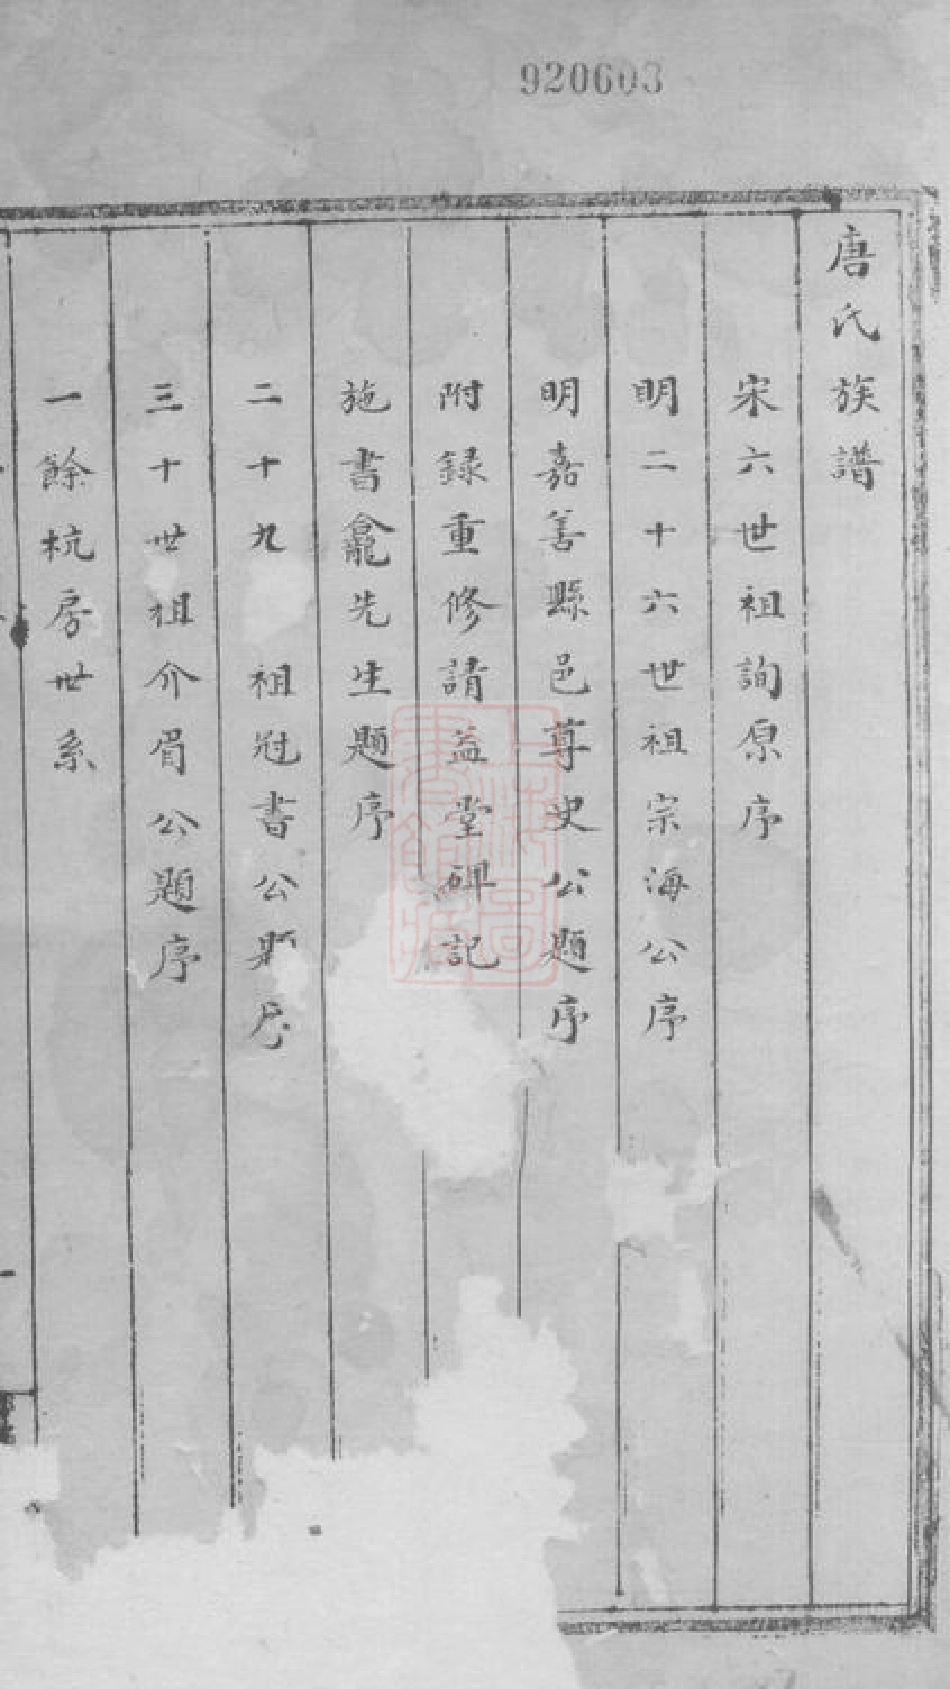 920603
唐氏族譜
宋六世祖詢原序
明二十六世祖宗海公序
明嘉善縣邑尊史公題序
附録重修請益堂碑記
施書龕先生題序
二十九 祖冠書公題序
三十世祖介眉公題序
一餘杭房世系
上海圖書館藏